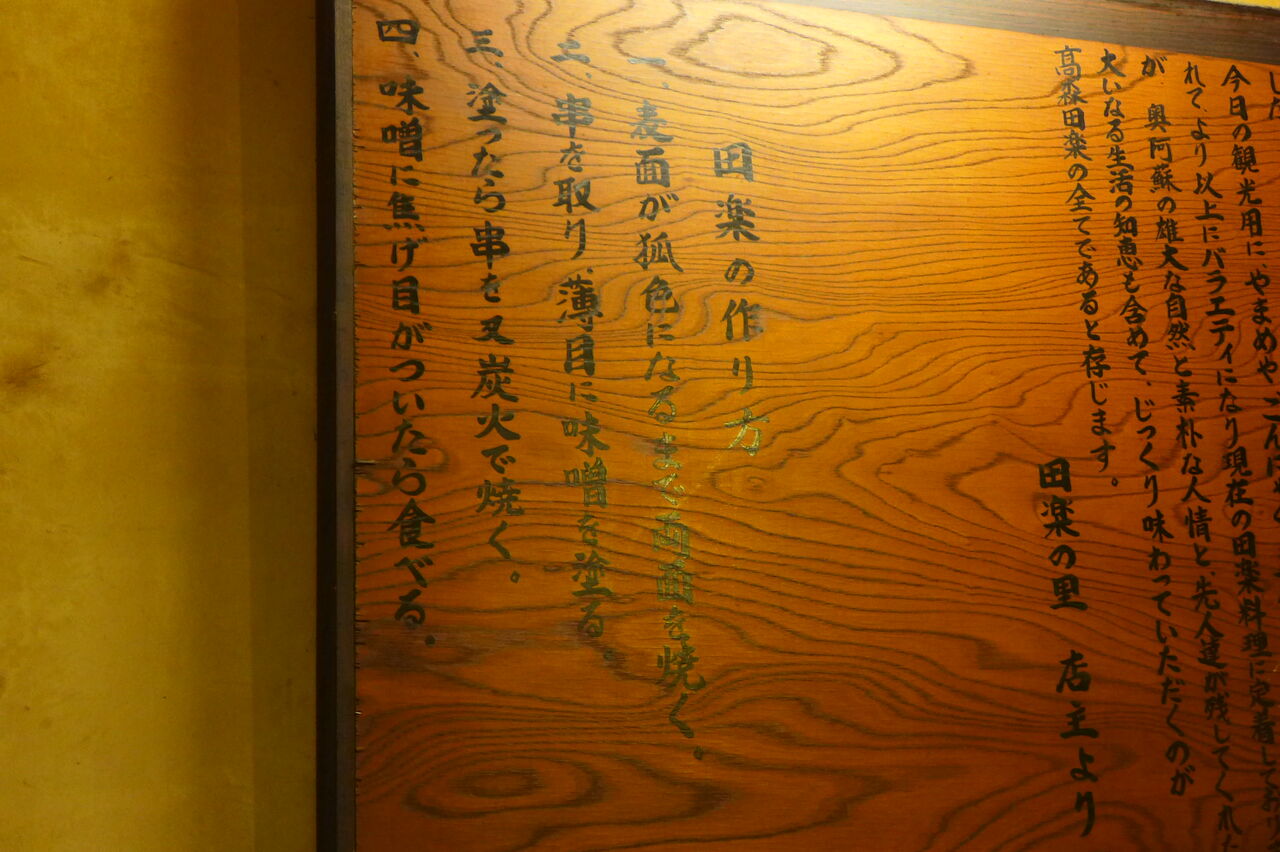 した
今日の観光用に やまめや
れて、より以上にバラエティになり現在の田楽料理に定着して
が 奥阿蘇の雄大な自然と素朴な人情と先人達が残してくれた
大いなる生活の知恵も含めて、じっくり味わっていただくのが
高森田楽の全てであると存じます。
田楽の里 店主より
田楽の作り方
一、表面が狐色になるまで両面を焼く。
二、串を取り、薄目に味噌を塗る。
三、塗ったら串を又炭火で焼く。
四、味噌に焦げ目がついたら食べる。